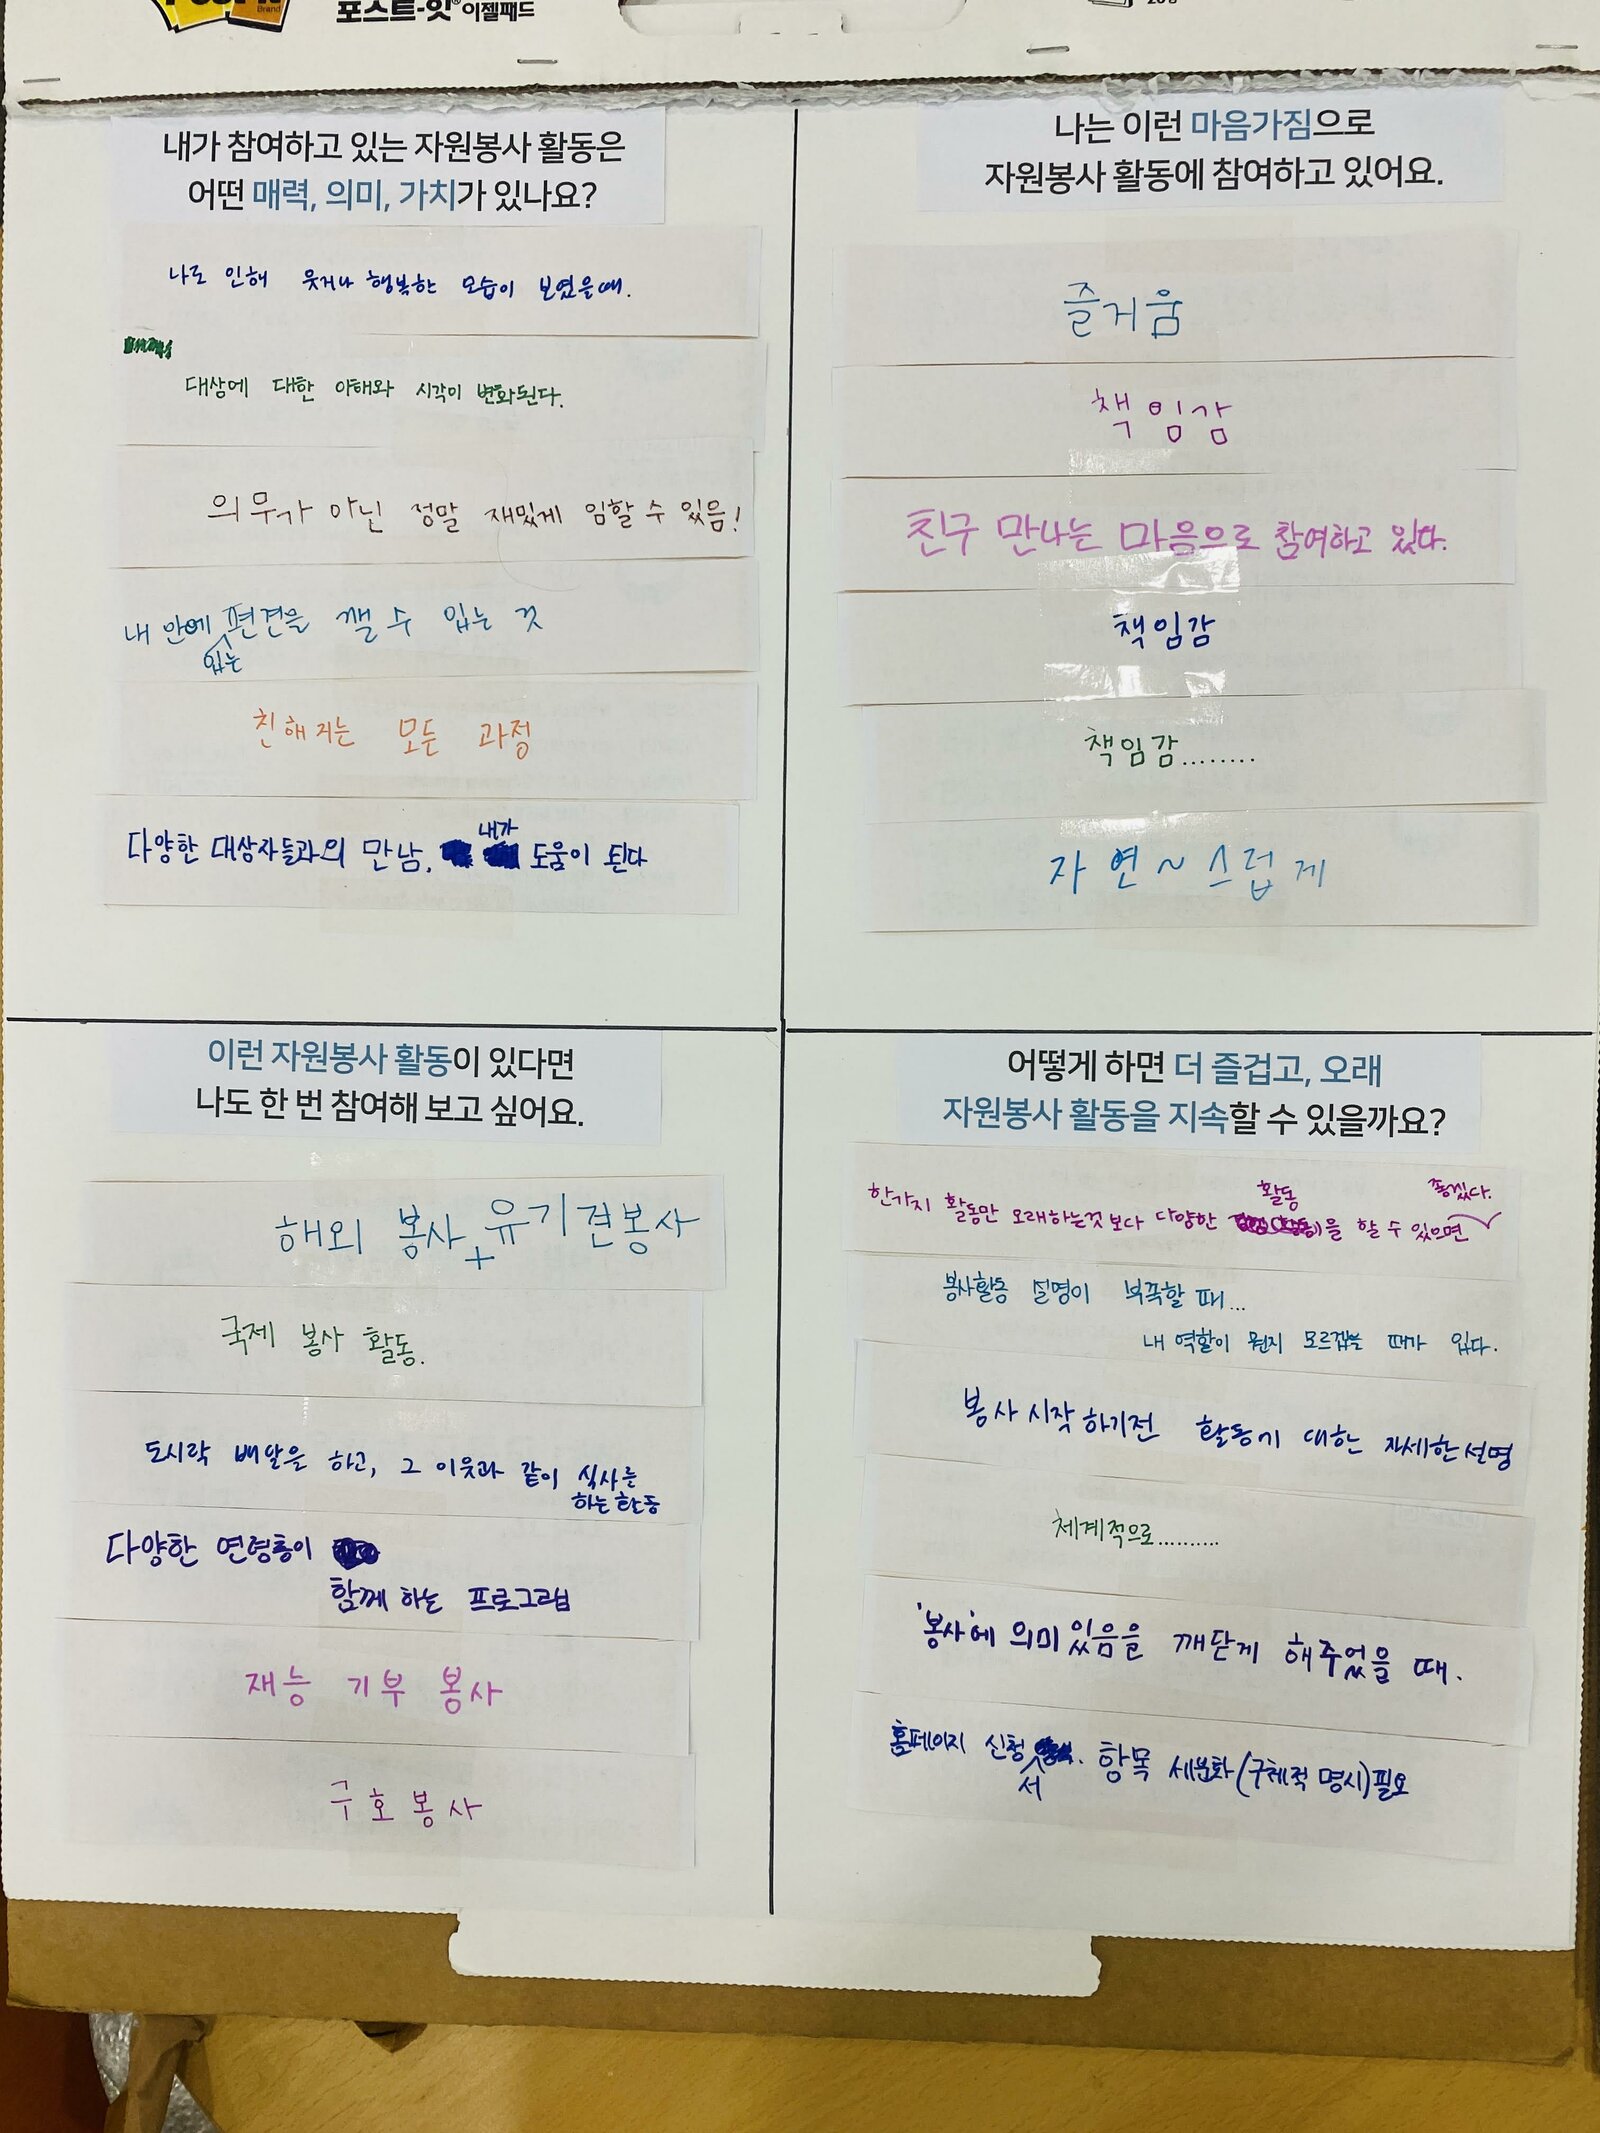 포스트-잇® 이젤패드
Brand
내가 참여하고 있는 자원봉사 활동은
어떤 매력, 의미, 가치가 있나요?
나로 인해 웃거나 행복한 모습이 보였을때.
대상에 대한 이해와 시각이 변화된다.
의무가 아닌 정말 재밌게 임할 수 있음!
내 안에 있는 편견을 깰 수 있는 것
친해지는 모든 과정
다양한 대상자들과의 만남. 내가 도움이 된다
나는 이런 마음가짐으로
자원봉사 활동에 참여하고 있어요.
즐거움
책임감
친구 만나는 마음으로 참여하고 있다.
책임감
책임감........
자연~스럽게
이런 자원봉사 활동이 있다면
나도 한 번 참여해 보고 싶어요.
해외 봉사 + 유기견봉사
국제 봉사 활동.
도시락 배달을 하고, 그 이웃과 같이 식사를
하는 활동
다양한 연령층이
함께 하는 프로그램
재능 기부 봉사
구호봉사
어떻게 하면 더 즐겁고, 오래
자원봉사 활동을 지속할 수 있을까요?
한가지 활동만 오래하는것 보다 다양한 활동을 할 수 있으면 좋겠다.
봉사활동 설명이 부족할 때...
내 역할이 뭔지 모르겠는 때가 있다.
봉사 시작 하기전 활동에 대한 자세한 설명
체계적으로..........
'봉사'에 의미있음을 깨닫게 해주었을 때.
홈페이지 신청서 항목 세분화(구체적 명시)필요